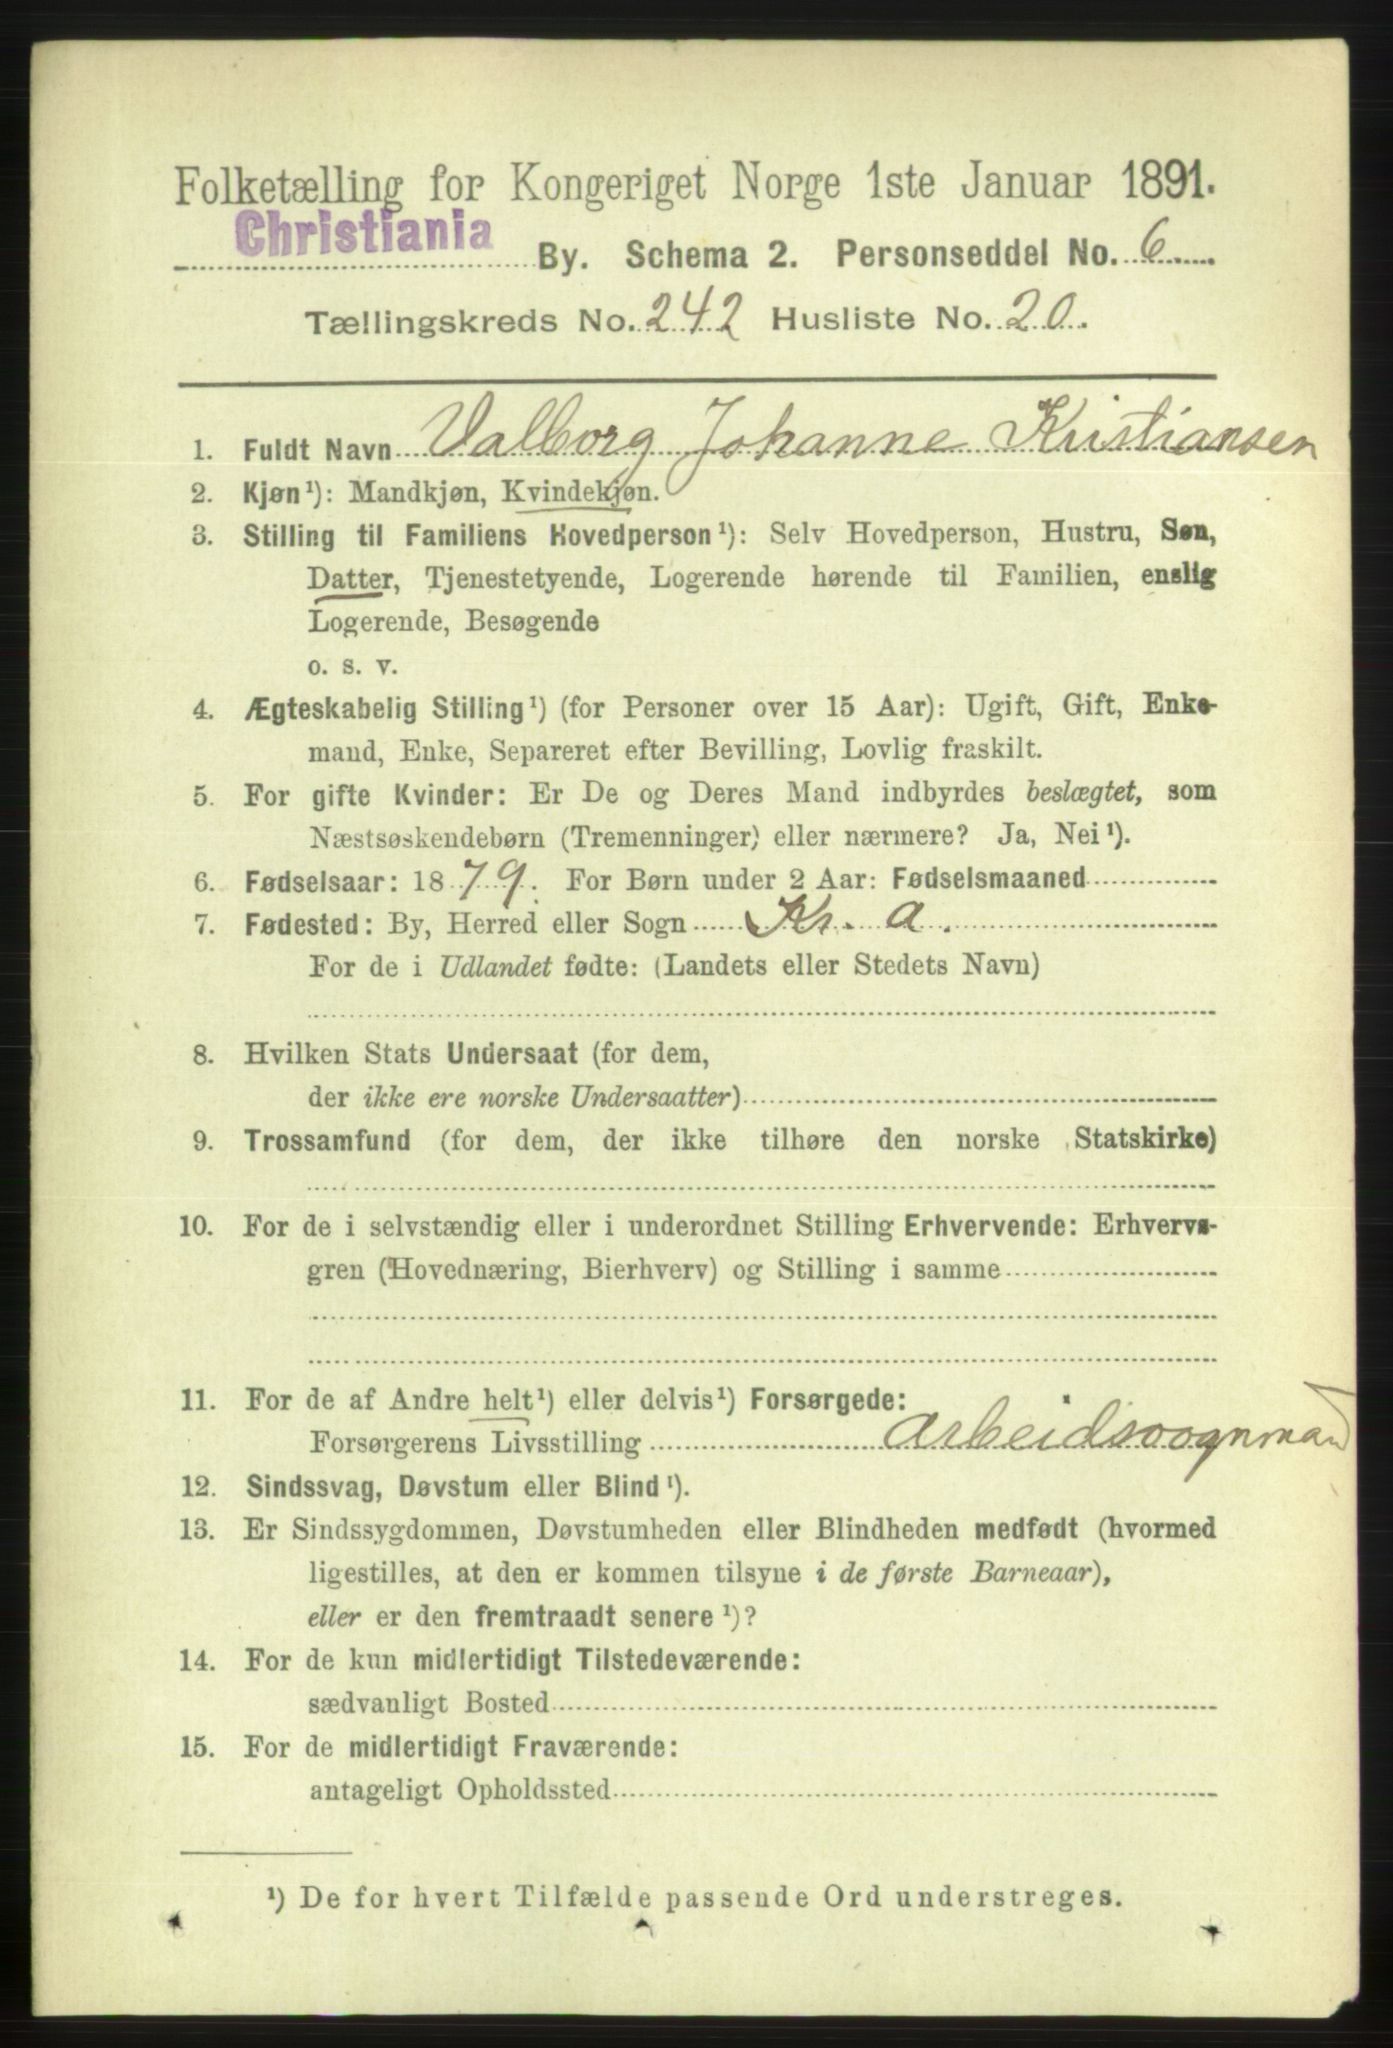 Folketælling for Kongeriget Norge 1ste Januar 1891.
Christiania By. Schema 2. Personseddel No. 6.
Tællingskreds No. 242 Husliste No. 20.
1. Fuldt Navn Valborg Johanne Kristiansen
2. Kjøn¹): Mandkjøn, Kvindekjøn.
3. Stilling til Familiens Hovedperson¹): Selv Hovedperson, Hustru, Søn,
Datter, Tjenestetyende, Logerende hørende til Familien, enslig
Logerende, Besøgende
o. s. v.
4. Ægteskabelig Stilling¹) (for Personer over 15 Aar): Ugift, Gift, Enke-
mand, Enke, Separeret efter Bevilling, Lovlig fraskilt.
5. For gifte Kvinder: Er De og Deres Mand indbyrdes beslægtet, som
Næstsøskendebørn (Tremenninger) eller nærmere? Ja, Nei¹).
6. Fødselsaar: 1879. For Børn under 2 Aar: Fødselsmaaned
7. Fødested: By, Herred eller Sogn Kr. a.
For de i Udlandet fødte: (Landets eller Stedets Navn)
8. Hvilken Stats Undersaat (for dem,
der ikke ere norske Undersaatter)
9. Trossamfund (for dem, der ikke tilhøre den norske Statskirke)
10. For de i selvstændig eller i underordnet Stilling Erhvervende: Erhvervs-
gren (Hovednæring, Bierhverv) og Stilling i samme
11. For de af Andre helt¹) eller delvis¹) Forsørgede:
Forsørgerens Livsstilling arbeidsvognmand
12. Sindssvag, Døvstum eller Blind¹).
13. Er Sindssygdommen, Døvstumheden eller Blindheden medfødt (hvormed
ligestilles, at den er kommen tilsyne i de første Barneaar),
eller er den fremtraadt senere¹)?
14. For de kun midlertidigt Tilstedeværende:
sædvanligt Bosted
15. For de midlertidigt Fraværende:
antageligt Opholdssted
¹) De for hvert Tilfælde passende Ord understreges.